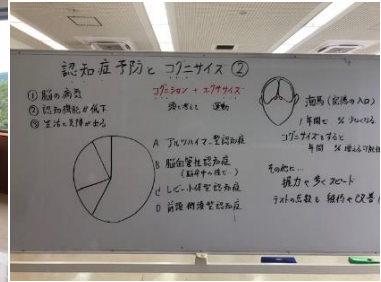 認知症予防と コグニサイズ ②
① 脳の病気
② 認知機能が低下
③ 生活に支障が出る
コグニション + エクササイズ
頭で考えて 運動
A アルツハイマー型認知症
B 脳血管性認知症
(脳卒中の後で…)
C レビー小体型認知症
D 前頭側頭型認知症
海馬(記憶の入口)
1年間で %少なくなる
コグニサイズをすると
年間 %増える可能性
その他に…
握力や歩くスピード
テストの点数も 維持や改善